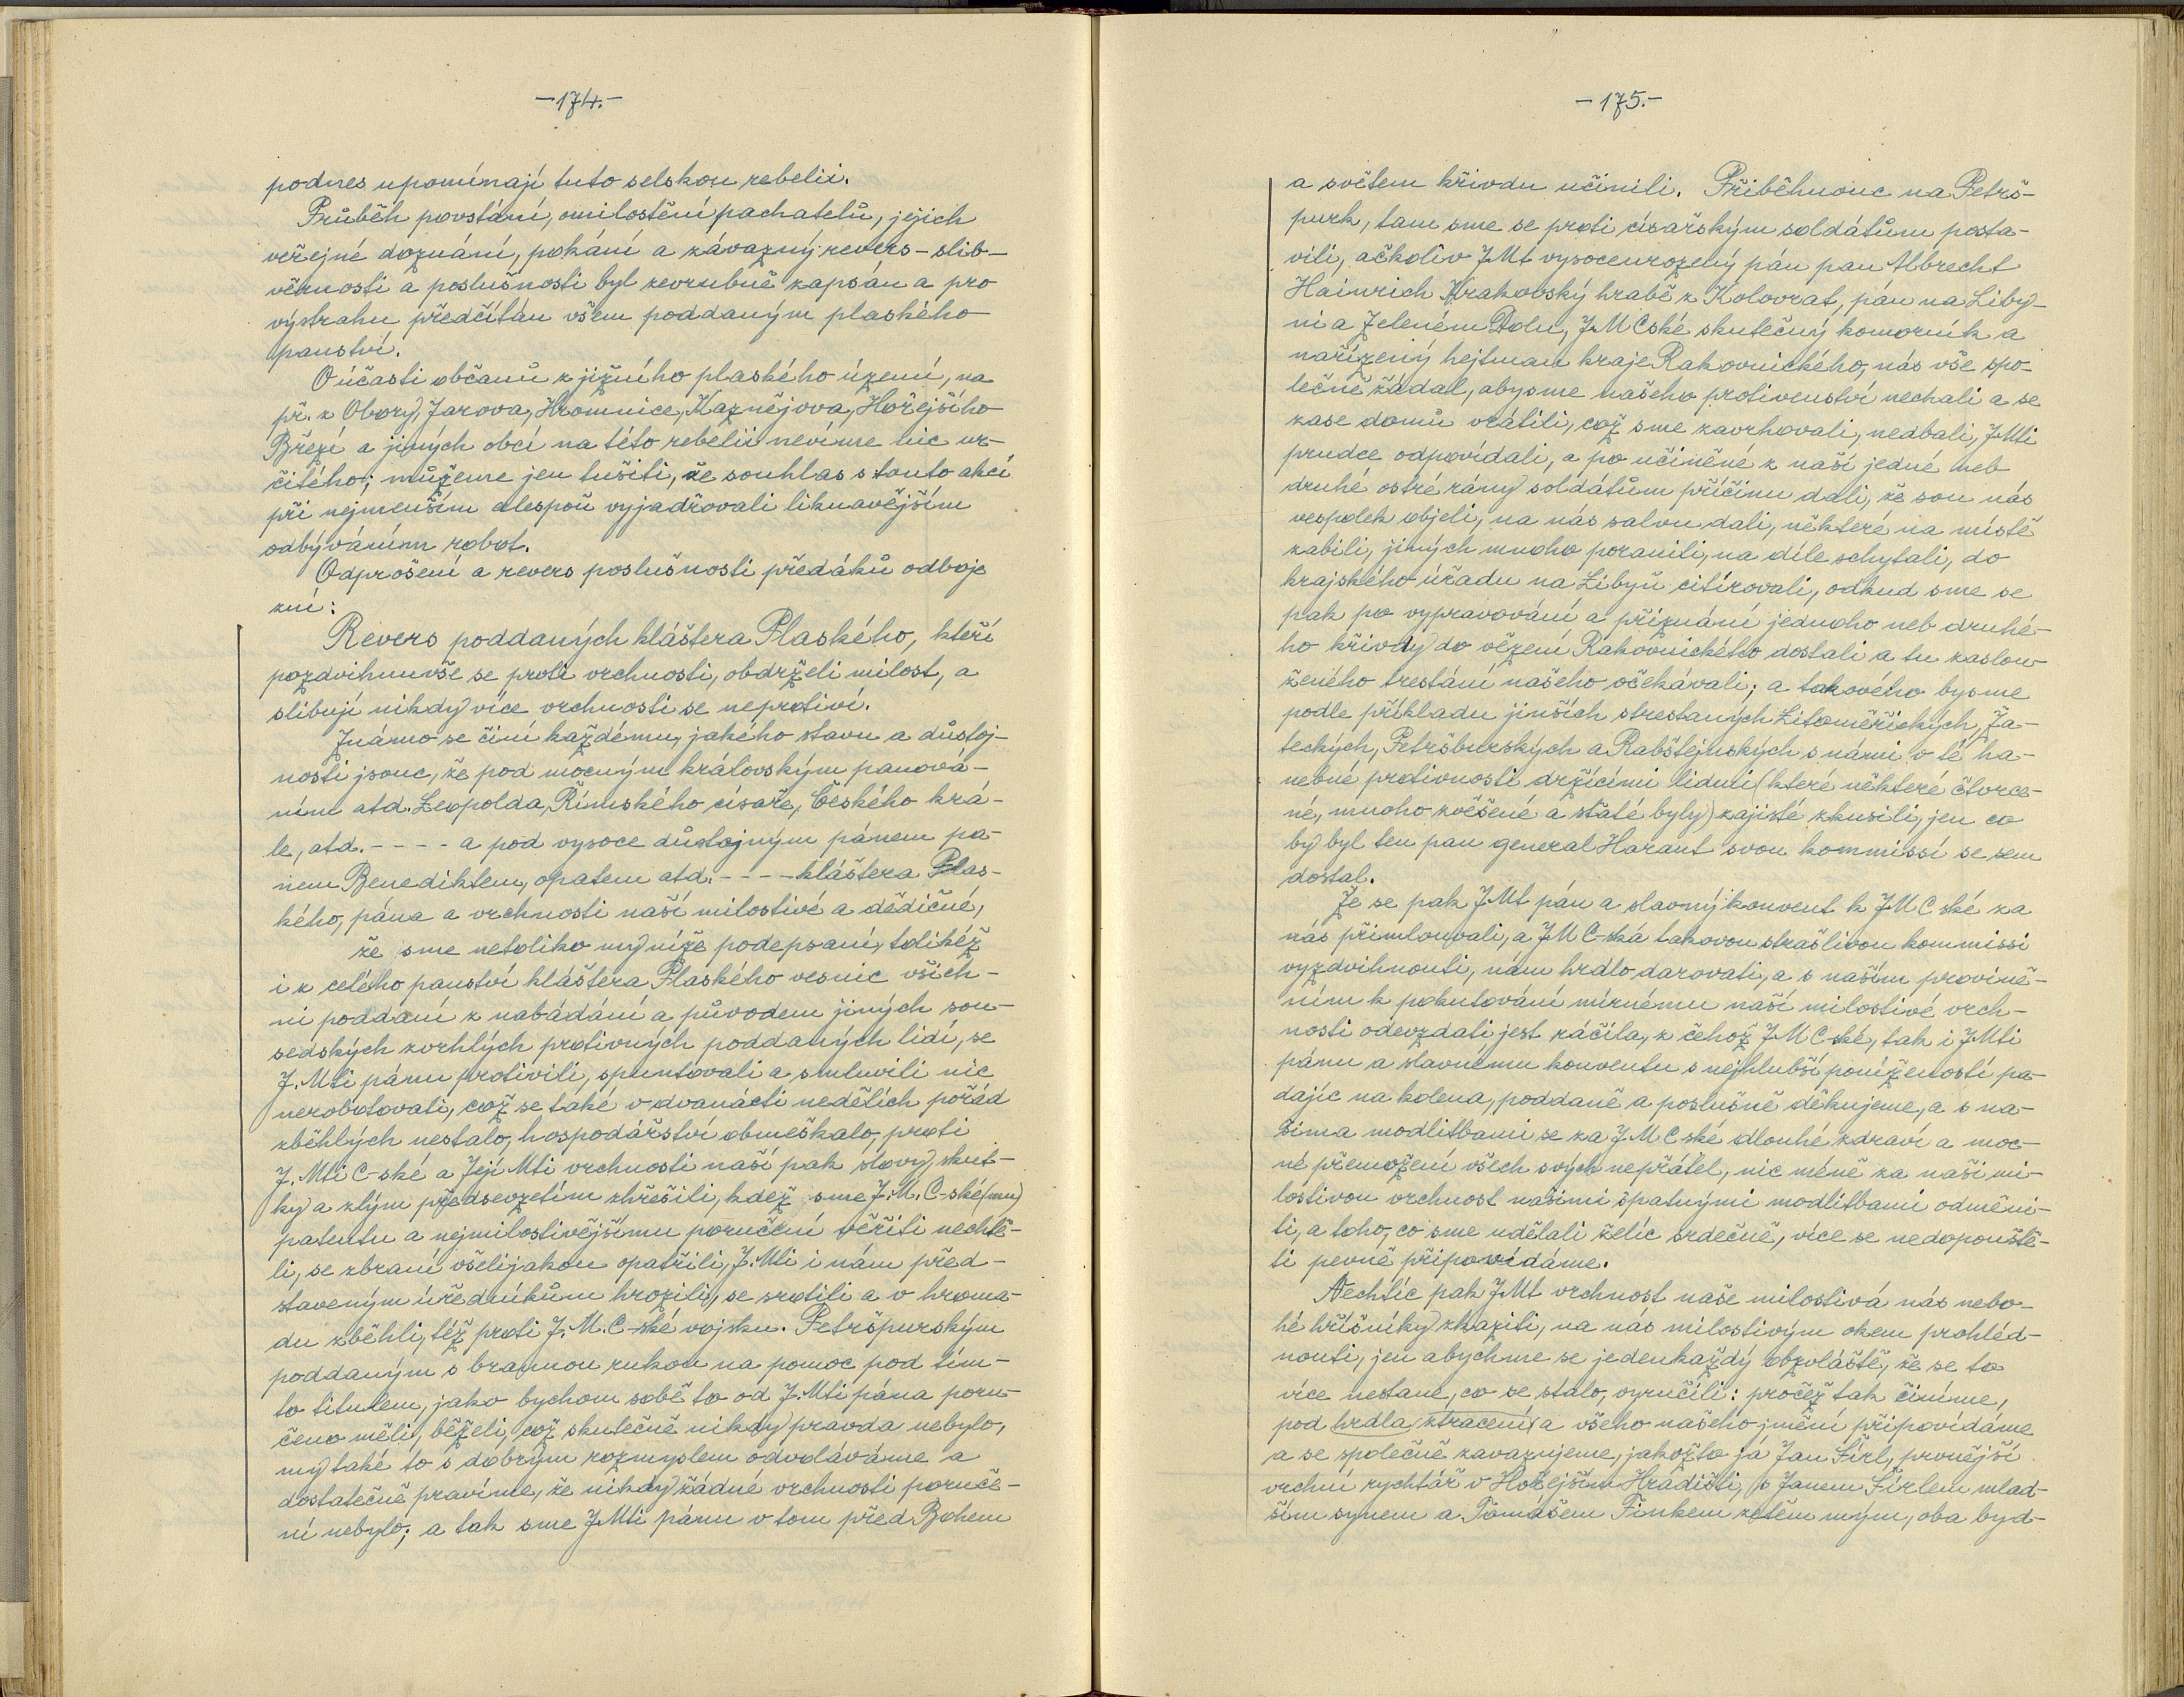 -174.-
podnes upomínají tuto selskou rebelii.
Průběh povstání, omilostění pachatelů, jejich
veřejné doznání, pokání a závazný revers - slib -
věrnosti a poslušnosti byl zevrubně zapsán a pro
výstrahu předčítán všem poddaným plaského
panství.
O účasti občanů z jižního plaského území, na
př. z Obory, Jarova, Hromnice, Kaznějova, Hořejšího
Březí a jiných obcí na této rebelii nevíme nic ur-
čitého; můžeme jen tušiti, že souhlas s touto akcí
při nejmenším alespoň vyjadřovali liknavějším
odbýváním robot.
Odprošení a revers poslušnosti předáků odboje
zní:
Revers poddaných kláštera Plaského, kteří
pozdvihnuvše se proti vrchnosti, obdrželi milost, a
slibují nikdy více vrchnosti se neprotiví.
Známo se činí každému, jakého stavu a důstoj-
nosti jsouc, že pod mocným královským panová-
ním atd. Leopolda, Římského císaře, Českého krá-
le, atd. - - - - a pod vysoce důstojným pánem pa-
nem Benediktem, opatem atd. - - - - kláštera Plas-
kého, pána a vrchnosti naší milostivé a dědičné,
že sme netoliko my níže podepsaní, tolikéž
i z celého panství kláštera Plaského vesnic všich-
ni poddaní z nabádání a původem jiných sou-
sedských zvrhlých protivných poddaných lidí, se
J. Mti pánu protivili, spuntovali a smluvili nic
nerobotovati, což se také v dvanácti nedělích pořád
zběhlých nestalo, hospodářství obmeškalo, proti
J. Mti C-ské a Její Mti vrchnosti naší pak slovy, skut-
ky a zlým předsevzetím zhřešili, kdež sme J. M. C-ské (mu)
patentu a nejmilostivějšímu poručení věřiti nechtě-
li, se zbraní všelijakou opatřili, J. Mti i nám před-
staveným úředníkům hrozili, se srotili a v hroma-
du zběhli, též proti J. M. C-ské vojsku. Petršpurským
poddaným s brannou rukou na pomoc pod tím-
to titulem, jako bychom sobě to od J. Mti pána poru-
čeno měli, běželi, což skutečně nikdy pravda nebylo,
my také to s dobrým rozmyslem odvoláváme a
dostatečně pravíme, že nikdy žádné vrchnosti poruče-
ní nebylo; a tak sme JMti pánu v tom před Bohem
-175.-
a světem křivdu učinili. Přiběhnouc na Petrš-
purk, tam sme se proti císařským soldátům posta-
vili, ačkoliv JMt vysoceurozený pán pan Albrecht
Hainrich Krakovský hrabě z Kolovrat, pán na Liby-
ni a Zeleném Dolu, JMCské skutečný komorník a
nařízený hejtman kraje Rakovnického, nás vše spo-
lečně žádal, abysme našeho protivenství nechali a se
zase domů vrátili, což sme zavrhovali, nedbali, JMti
prudce odpovídali, a po učiněné z naší jedné neb
druhé ostré rány soldátům příčinu dali, že sou nás
vespolek objeli, na nás salvu dali, některé na místě
zabili, jiných mnoho poranili, na díle schytali, do
krajského úřadu na Libyň citírovali, odkud sme se
pak po vypravování a příznání jednoho neb druhé-
ho křivdy do vězení Rakovnického dostali a tu zaslou-
ženého trestání našeho očekávali; a takového bysme
podle příkladu jinších strestaných Litoměřických, Ža-
teckých, Petršburských a Rabštejnských s námi v té ha-
nebné protivnosti držícími lidmi (které některé čtvrce-
né, mnoho zvěšené a sťaté byly) zajisté zkusili, jen co
by byl ten pan general Harant svou kommissí se sem
dostal.
Že se pak JMt pán a slavný konvent k JMC ské za
nás přimlouvali, a JMC-ská takovou strašlivou kommissi
vyzdvihnouti, nám hrdlo darovati, a s naším provině-
ním k pokutování mírnému naší milostivé vrch-
nosti odevzdati jest ráčila, z čehož JMC-ské, tak i JMti
pánu a slavnému konventu s nejhlubší poníženosti pa-
dajíc na kolena, poddaně a poslušně děkujeme, a s na-
šima modlitbami se za JMC ské dlouhé zdraví a moc-
né přemožení všech svých nepřátel, nic méně za naši mi-
lostivou vrchnost našimi špatnými modlitbami odměni-
ti, a toho, co sme udělali želíc srdečně, více se nedopouště-
ti pevně připovídáme.
Nechtíc pak JMt vrchnost naše milostivá nás nebo-
hé hříšníky zkaziti, na nás milostivým okem prohléd-
nouti, jen abychme se jedenkaždý obzvláště, že se to
více nestane, co se stalo, vyručili: pročež tak činíme,
pod hrdla ztracení a všeho našeho jmění připovídáme
a se společně zavazujeme, jakožto já Jan Šírl, prvnější
vrchní rychtář v Hořejším Hradišti, s Janem Šírlem mlad-
šim synem a Tomášem Finkem zetěm mým, oba byd-